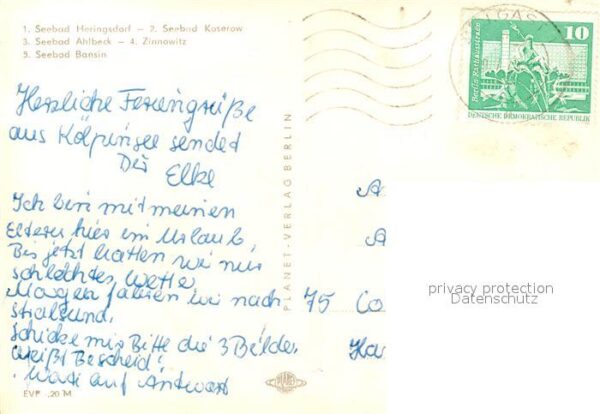 1. Seebad Heringsdorf – 2. Seebad Koserow
3. Seebad Ahlbeck – 4. Zinnowitz
5. Seebad Bansin
Herzliche Feriengrüße
aus Kölpinsee sendet
Dir Elke
Ich bin mit meinen
Eltern hier im Urlaub.
Bis jetzt hatten wir nur
schlechtes Wetter
Morgen fahren wir nach
Stralsund.
Schicke mir Bitte die 3 Bilder
weißt Bescheid!
Wart auf Antwort
EVP -,20 M
PLANET-VERLAG BERLIN
PLANET
10
Berlin, Rathausstraße
DEUTSCHE DEMOKRATISCHE REPUBLIK
A
A
75 Co
Ha
privacy protection
Datenschutz